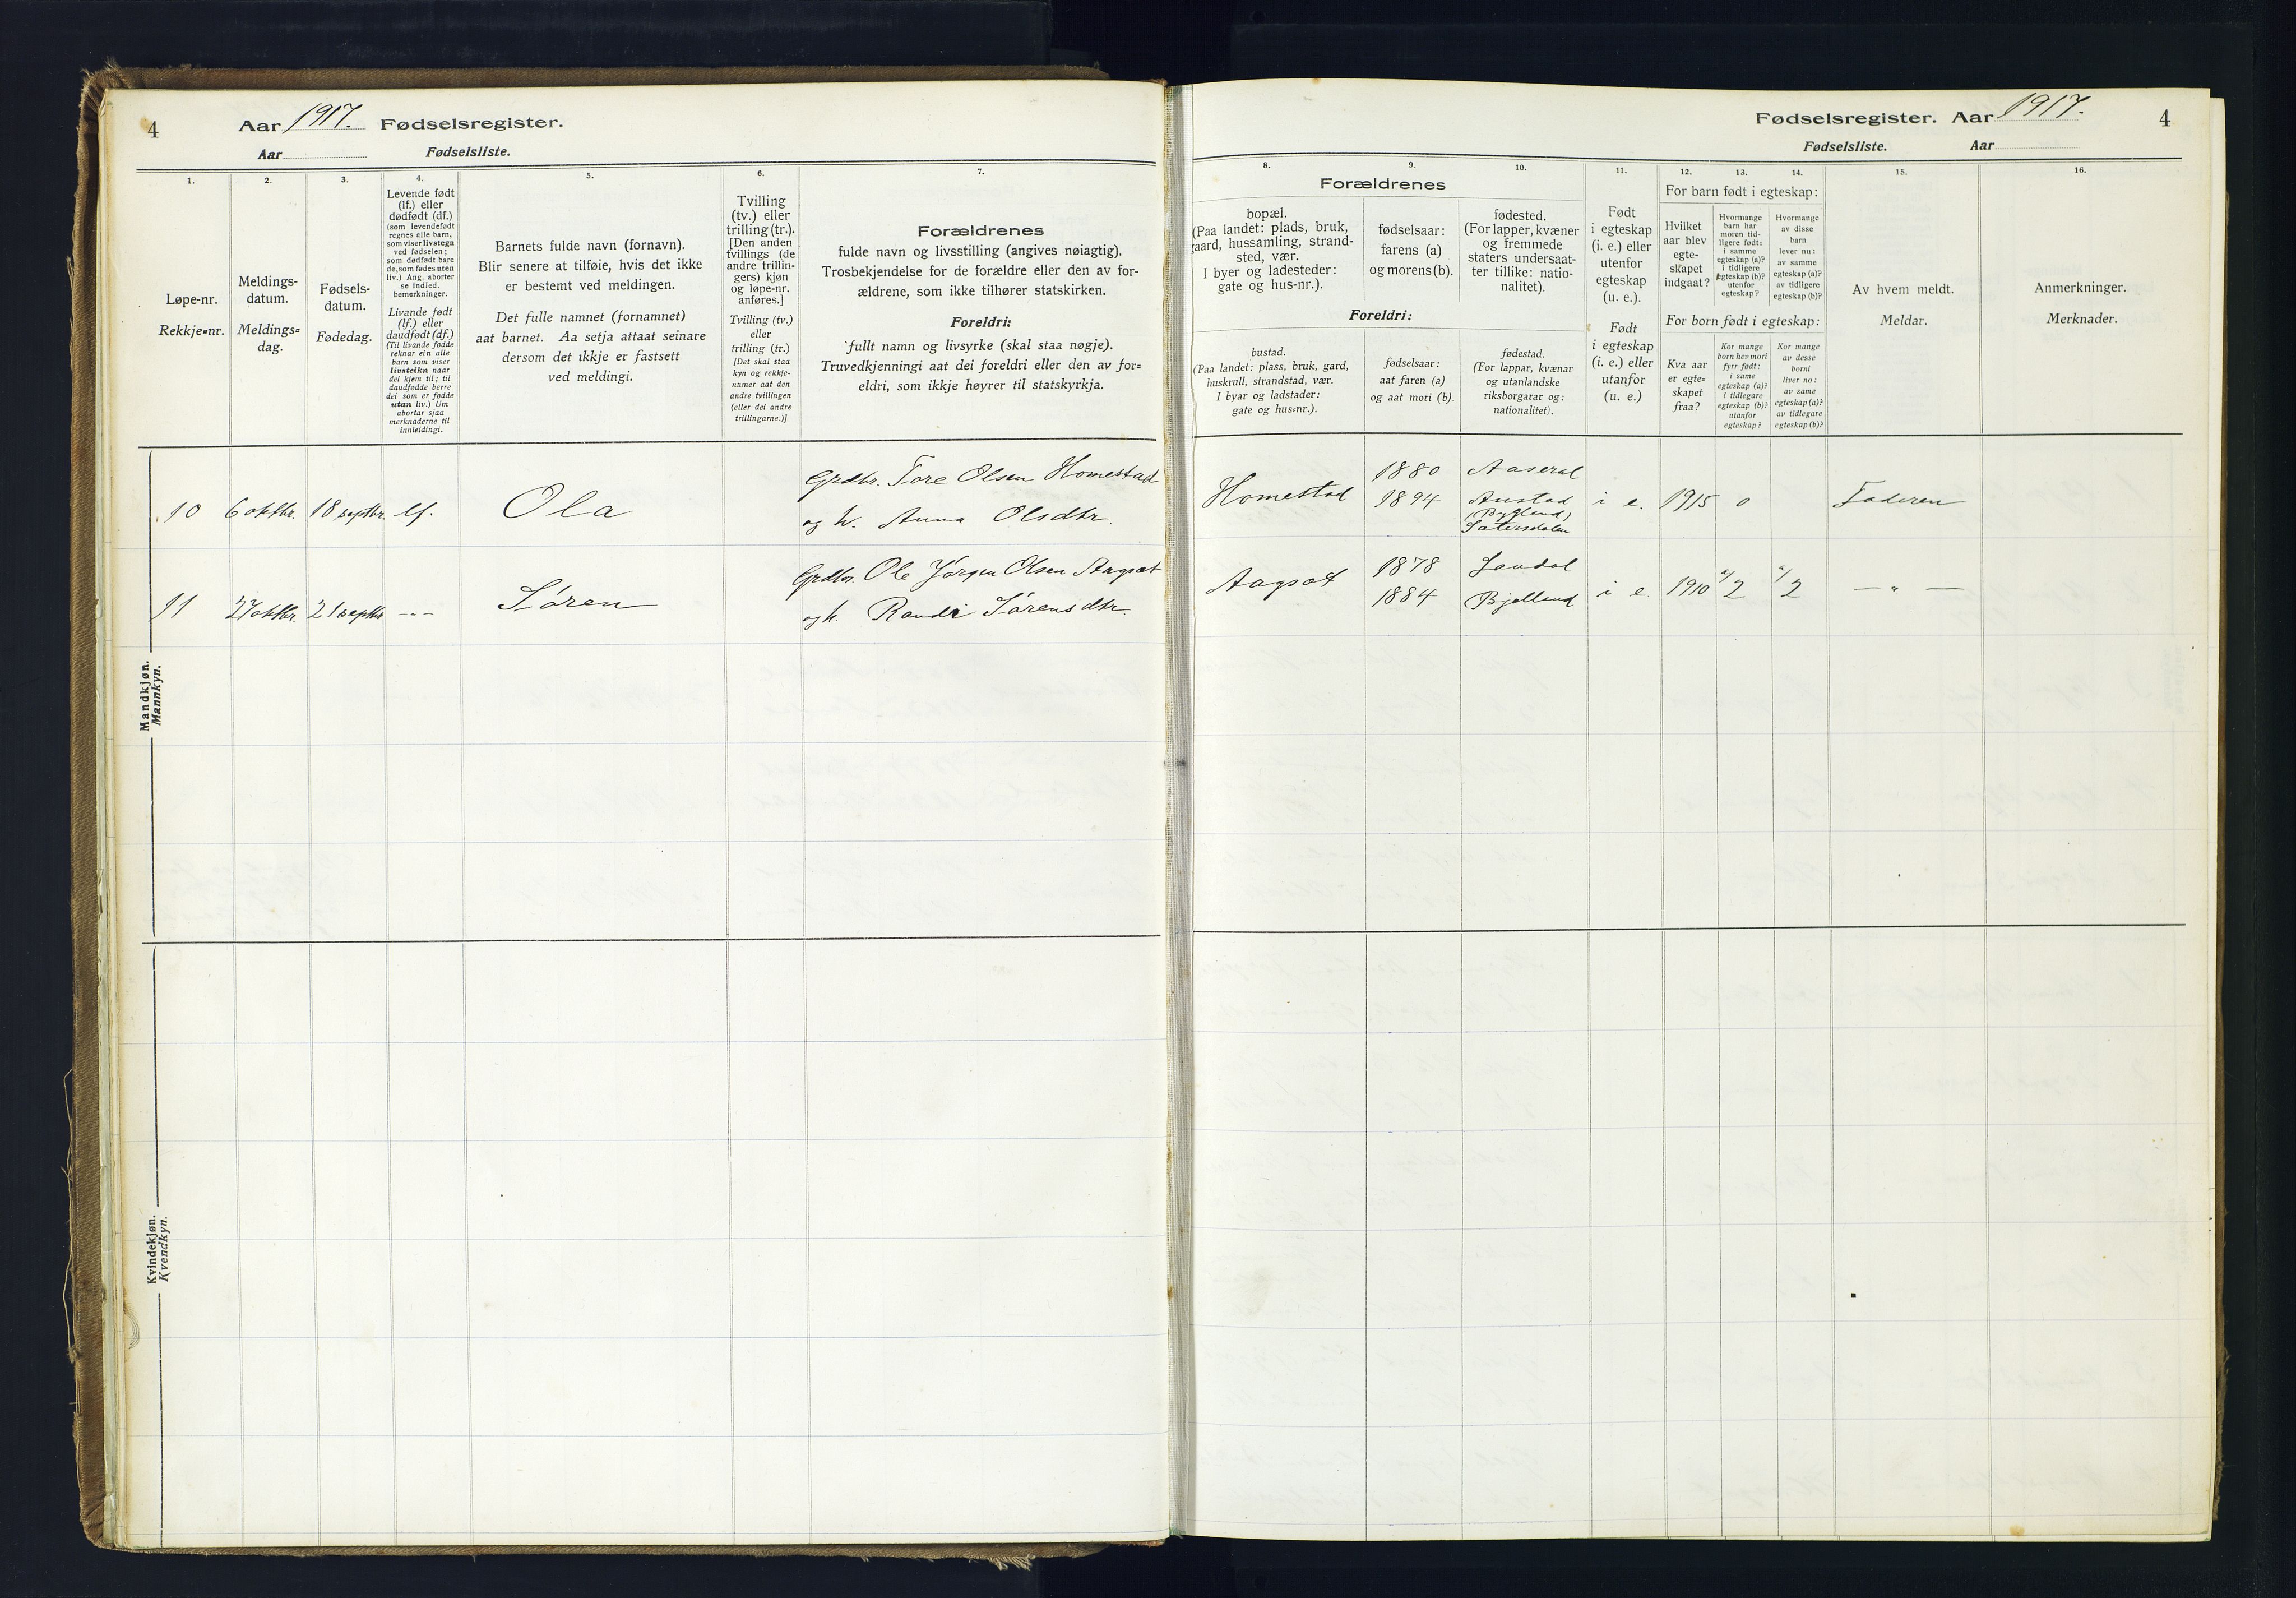 4
Aar 1917. Fødselsregister.
Aar Fødselsliste.
1.
2.
3.
4.
5.
6.
7.
Løpe-nr.
Rekkje=nr.
Meldings-
datum.
Meldings=
dag.
Fødsels-
datum.
Fødedag.
Levende født
(lf.) eller
dødfødt (df.)
(som levendefødt
regnes alle barn,
som viser livstegn
ved fødselen;
som dødfødt bare
de, som fødes uten
liv.) Ang. aborter
se indled.
bemerkninger.
Livande født
(lf.) eller
daudfødt (df.)
(Til livande fødde
reknar ein alle
barn som viser
livsteikn naar
dei kjem til; til
daudfødde berre
dei som er fødde
utan liv.) Um
abortar sjaa
merknaderne til
innleidingi.
Barnets fulde navn (fornavn).
Blir senere at tilføie, hvis det ikke
er bestemt ved meldingen.
Det fulle namnet (fornamnet)
aat barnet. Aa setja attaat seinare
dersom det ikkje er fastsett
ved meldingi.
Tvilling
(tv.) eller
trilling (tr.).
[Den anden
tvillings (de
andre trillin-
gers) kjøn
og løpe-nr.
anføres.]
Tvilling (tv.)
eller
trilling (tr.)
[Det skal staa
kyn og rekkje-
nummer aat den
andre tvillingen
(eller dei andre
trillingarne.)]
Forældrenes
fulde navn og livsstilling (angives nøiagtig).
Trosbekjendelse for de forældre eller den av for-
ældrene, som ikke tilhører statskirken.
Foreldri:
fullt namn og livsyrke (skal staa nøgje).
Truvedkjenningi aat dei foreldri eller den av for=
eldri, som ikkje høyrer til statskyrkja.
10 6 oktbr. 18 septbr. lf. Ola Grdbr. Tore Olsen Homestad
og h. Anna Olsdtr.
11 27 oktbr. 21 septbr. -"- Søren Grdbr. Ole Jørgen Olsen Aagsæt
og h. Randi Sørensdtr.
Mandkjøn.
Mannkyn.
Kvindekjøn.
Kvendkyn.
Fødselsregister. Aar 1917. 4
Fødselsliste. Aar
8.
9.
10.
11.
12.
13.
14.
15.
16.
Forældrenes
bopæl.
(Paa landet: plads, bruk,
gaard, hussamling, strand-
sted, vær.
I byer og ladesteder:
gate og hus-nr.).
fødselsaar:
farens (a)
og morens (b).
fødested.
(For lapper, kvæner
og fremmede
staters undersaat-
ter tillike: natio-
nalitet).
Foreldri:
bustad.
(Paa landet: plass, bruk, gard,
huskrull, strandstad, vær.
I byar og ladstader:
gate og hus=nr.).
fødselsaar:
aat faren (a)
og aat mori (b).
fødestad.
(For lappar, kvænar
og utanlandske
riksborgarar og:
nationalitet).
Født
i egteskap
(i. e.) eller
utenfor
egteskap
(u. e.).
Født
i egteskap
(i. e.) eller
utanfor
(u. e.)
For barn født i egteskap:
Hvilket
aar blev
egte-
skapet
indgaat?
Hvormange
barn har
moren tid-
ligere født:
i samme
egteskap (a)?
i tidligere
egteskap (b)?
utenfor
egteskap?
Hvormange
av disse
barn
lever nu:
av samme
egteskap (a)?
av tidligere
egteskap (b)?
For born født i egteskap:
Kva aar
er egte=
skapet
fraa?
Kor mange
born hev mori
fyrr født:
i same
egteskap (a)?
i tidlegare
egteskap (b)?
utanfor
egteskap?
Kor mange
av desse
borni
liver no:
av same
egteskap (a)?
av tidlegare
egteskap (b)?
Av hvem meldt.
Meldar.
Anmerkninger.
Merknader.
Homestad 1880 Aaseral
1894 Austad i e. 1915 0 Faderen
(Bygland)
Sætersdalen
Aagsæt 1878 Laudal
1884 Bjelland i e. 1910 a/2 a/2 — " —